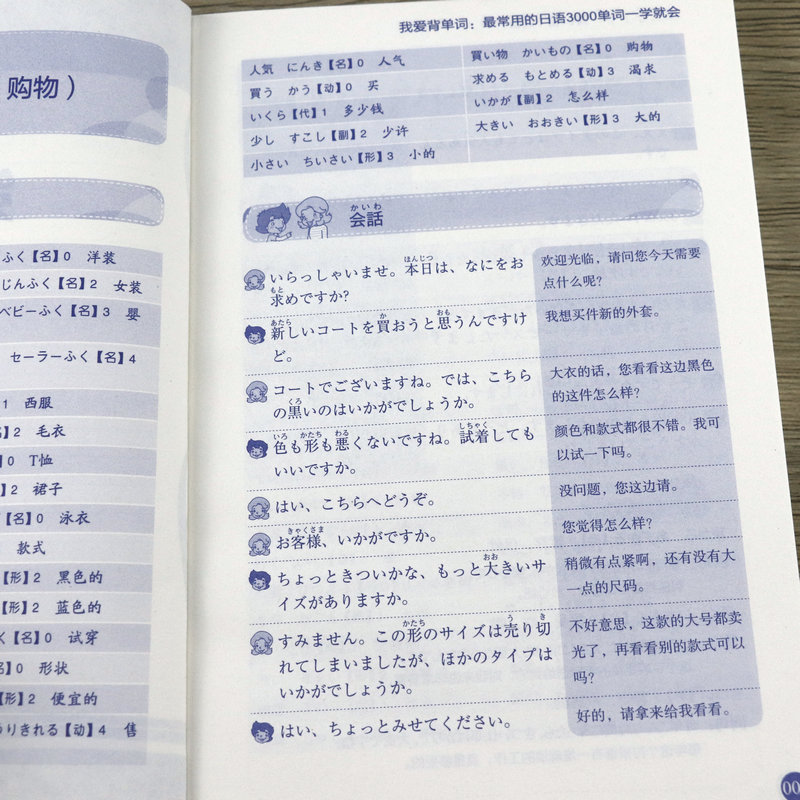 购物）
ふく【名】0 洋装
じんふく【名】2 女装
ベビーふく【名】3 婴
セーラーふく【名】4
1 西服
2 毛衣
】0 T恤
】2 裙子
【名】0 泳衣
款式
【形】2 黑色的
【形】2 蓝色的
く【名】0 试穿
名】0 形状
【形】2 便宜的
うりきれる【动】4 售
我爱背单词：最常用的日语3000单词一学就会
人気 にんき【名】0 人气
買い物 かいもの【名】0 购物
買う かう【动】0 买
求める もとめる【动】3 渴求
いくら【代】1 多少钱
いかが【副】2 怎么样
少し すこし【副】2 少许
大きい おおきい【形】3 大的
小さい ちいさい【形】3 小的
かいわ
会話
ほんじつ
いらっしゃいませ。本日は、なにをお
もと
求めですか?
欢迎光临，请问您今天需要
点什么呢?
あたら か おも
新しいコートを買おうと思うんですけ
ど。
我想买件新的外套。
コートでございますね。では、こちら
くろ
の黒いのはいかがでしょうか。
大衣的话，您看看这边黑色
的这件怎么样?
いろ かたち わる しちゃく
色も形も悪くないですね。試着しても
いいですか。
颜色和款式都很不错。我可
以试一下吗。
はい、こちらへどうぞ。
没问题，您这边请。
きゃくさま
お客様、いかがですか。
您觉得怎么样?
おお
ちょっときついかな、もっと大きいサ
イズがありますか。
稍微有点紧啊，还有没有大
一点的尺码。
かたち う き
すみません。この形のサイズは売り切
れてしまいましたが、ほかのタイプは
いかがでしょうか。
不好意思，这款的大号都卖
光了，再看看别的款式可以
吗?
はい、ちょっとみせてください。
好的，请拿来给我看看。
00